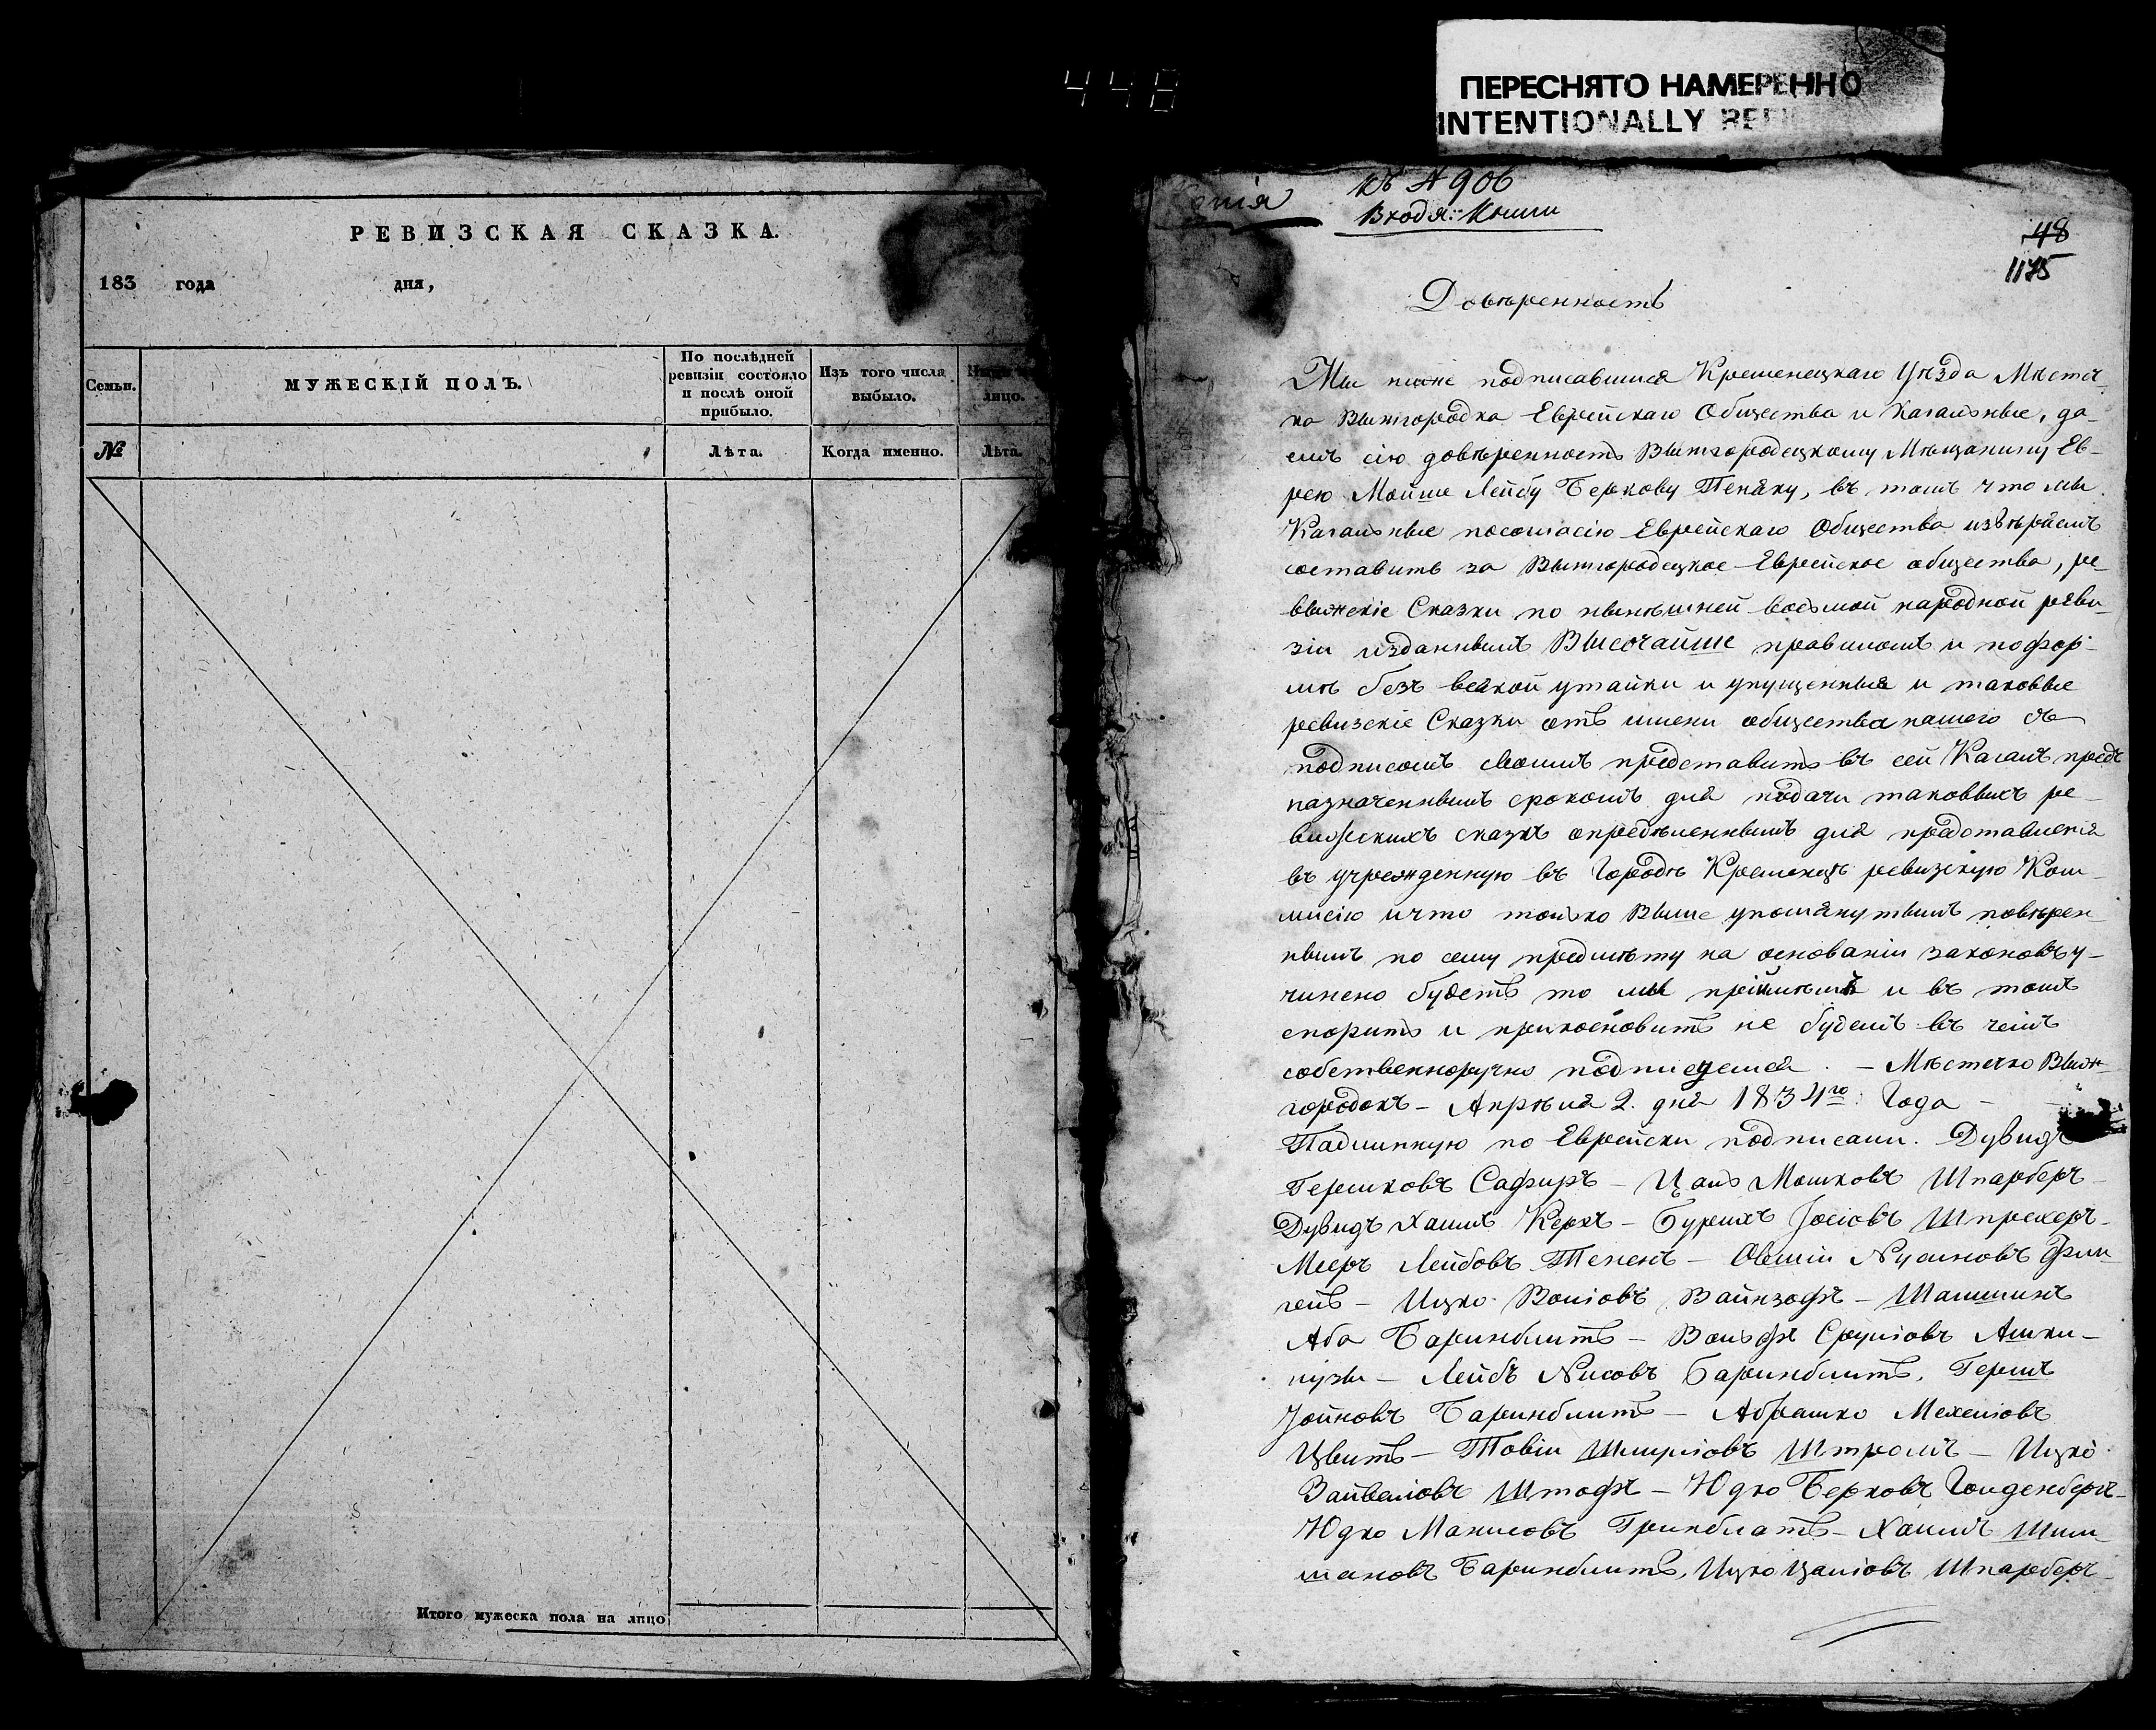 448
ПЕРЕСНЯТО НАМЕРЕННО
INTENTIONALLY
РЕВИЗСКАЯ СКАЗКА.
183 года дня,
Семьи.
МУЖЕСКІЙ ПОЛЪ.
По послѣдней ревизіи состояло и послѣ оной прибыло.
Изъ того числа выбыло.
лицо.
№
Лѣта.
Когда именно.
Лѣта.
Итого мужеска пола на лицо
Копія
къ № 906
Входя: Книги
48
1175
Довѣренность
Мы ниже подписавшися Кременецкаго Уѣзда Мѣстеч-
ка Вышгородка Еврейскаго Общества и Кагальные, да-
емъ сію довѣренность Вышгородецкому Мѣщанину Ев-
рею Мойше Лейбу Беркову Пеняку, въ томъ что мы
Кагальные посогласію Еврейскаго Общества извѣряемъ
составить за Вышгородецкое Еврейское общества, ре-
вижскіе Сказки по нынѣшней восьмой народной реви-
зіи изданнымъ Высочайше правиломъ и пофор-
мѣ безъ всякой утайки и упущенныя и таковые
ревизскіе Сказки отъ имени общества нашего съ
подписомъ своимъ представить въ сей Кагалъ предъ
назначеннымъ срокомъ для подачи таковыхъ ре-
визскихъ сказкъ опредѣленнымъ для представленія
въ учрежденную въ Городѣ Кременцѣ ревизскую Ком-
мисію ичто только Выше упомянутымъ повѣрен-
нымъ по сему предмѣту на основаніи законовъ у-
чинено будетъ то мы пріймѣмъ и въ томъ
спорить и прикословить не будемъ въ чемъ
собственноручно подписуемся. — Мѣстечко Выж-
городокъ — Апрѣля 2. дня 1834го Года —
Падлинную по Еврейски подписали. Дувидъ
Гершковъ Сафиръ — Цаль Мошковъ Шпарберъ —
Дувидъ Хаимъ Керкъ — Бурихъ Іосіовъ Шпрехеръ —
Мееръ Лейбовъ Тепенъ — Овшій Нусиновъ Фин-
гель — Ицко Воліовъ Вайнзофъ — Шашминъ
Аба Баринблитъ — Вольфъ Сруліовъ Ашки-
нузы — Лейбъ Нисовъ Баринблитъ, Гершъ
Іойновъ Баринблитъ — Абрашко Мехеліовъ
Цвитъ — Товіи Шмуліовъ Штромъ — Ицко
Зайвеліовъ Штофъ — Юдко Берковъ Голденбергъ —
Юдко Манисовъ Гринблатъ — Хаимъ Шим-
шановъ Баринблитъ, Ицко Цаліовъ Шпарберъ —